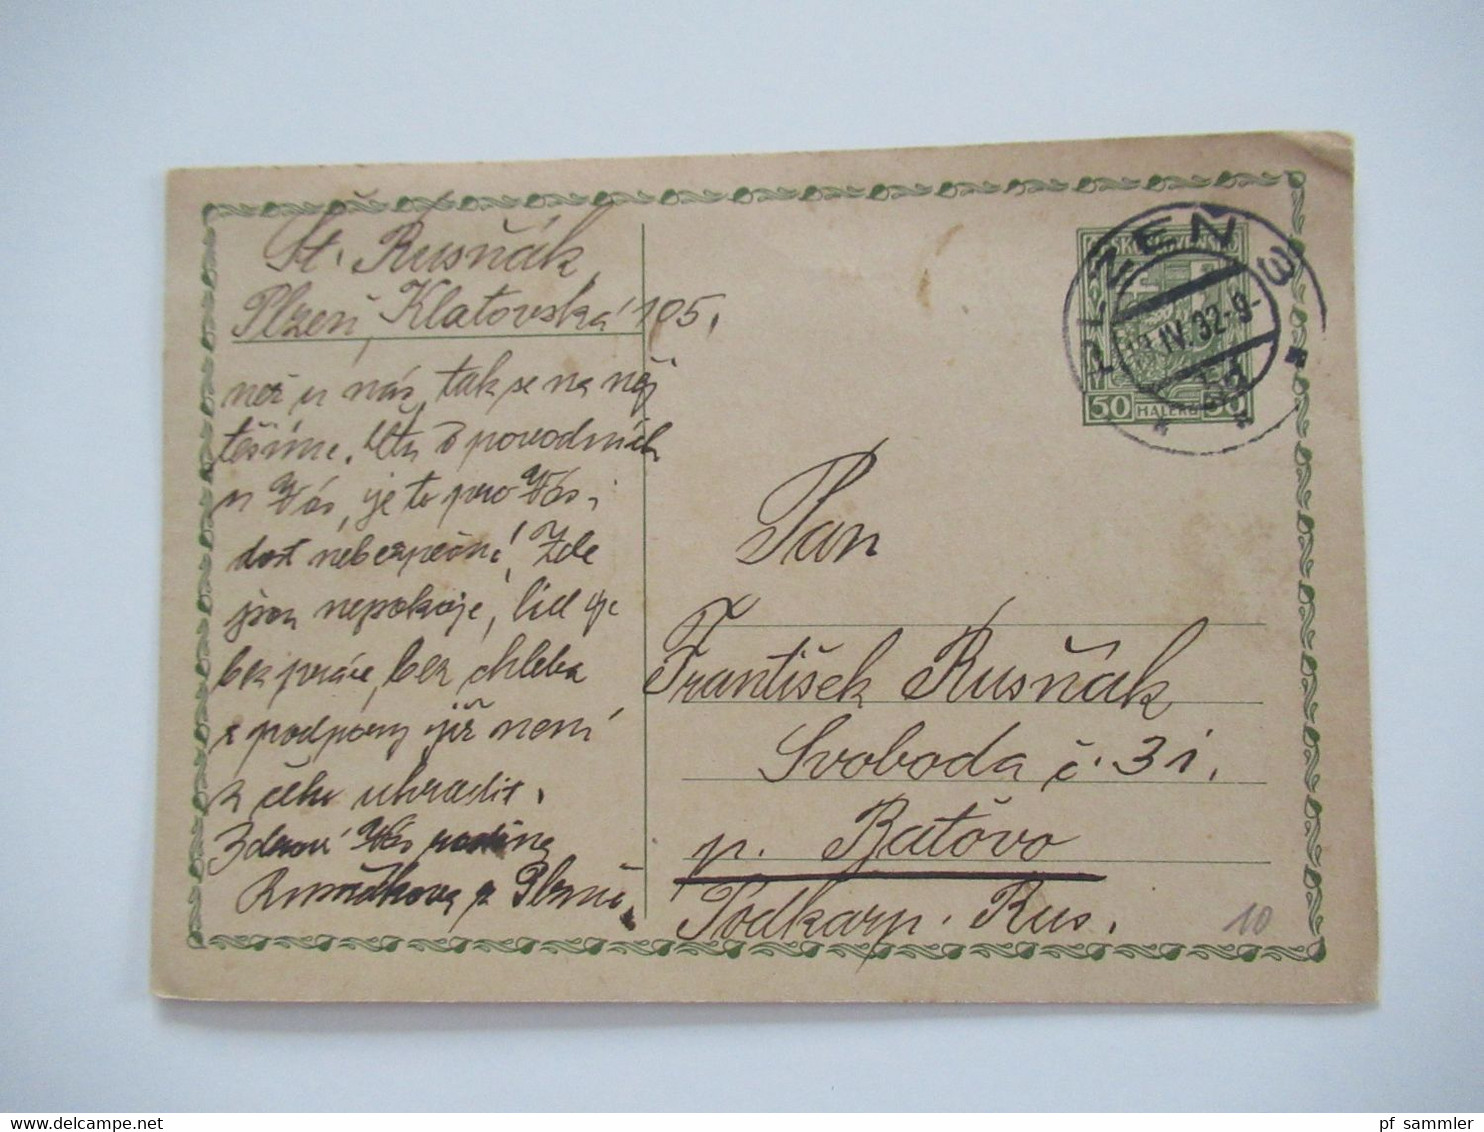 St. Rusňák
Plzeň, Klatovská 105.
než u nás, tak se na něj
těšíme. Čtu o povodních
u Vás, je to pro Vás i
dost nebezpečné! Zde
jsou nepokoje, lid je
bez práce, bez chleba
z podpory již není
z čeho uhradit.
Zdraví Vás rodina
Rusňákova z Plzně.
ČESKOSLOVENSKO
50 HALÉŘŮ 50
PLZEŇ 3
IV.32-9-
Pan
František Rusňák
Svoboda č. 31.
p. Baťovo
Podkarp. Rus.
10
pf_sammler